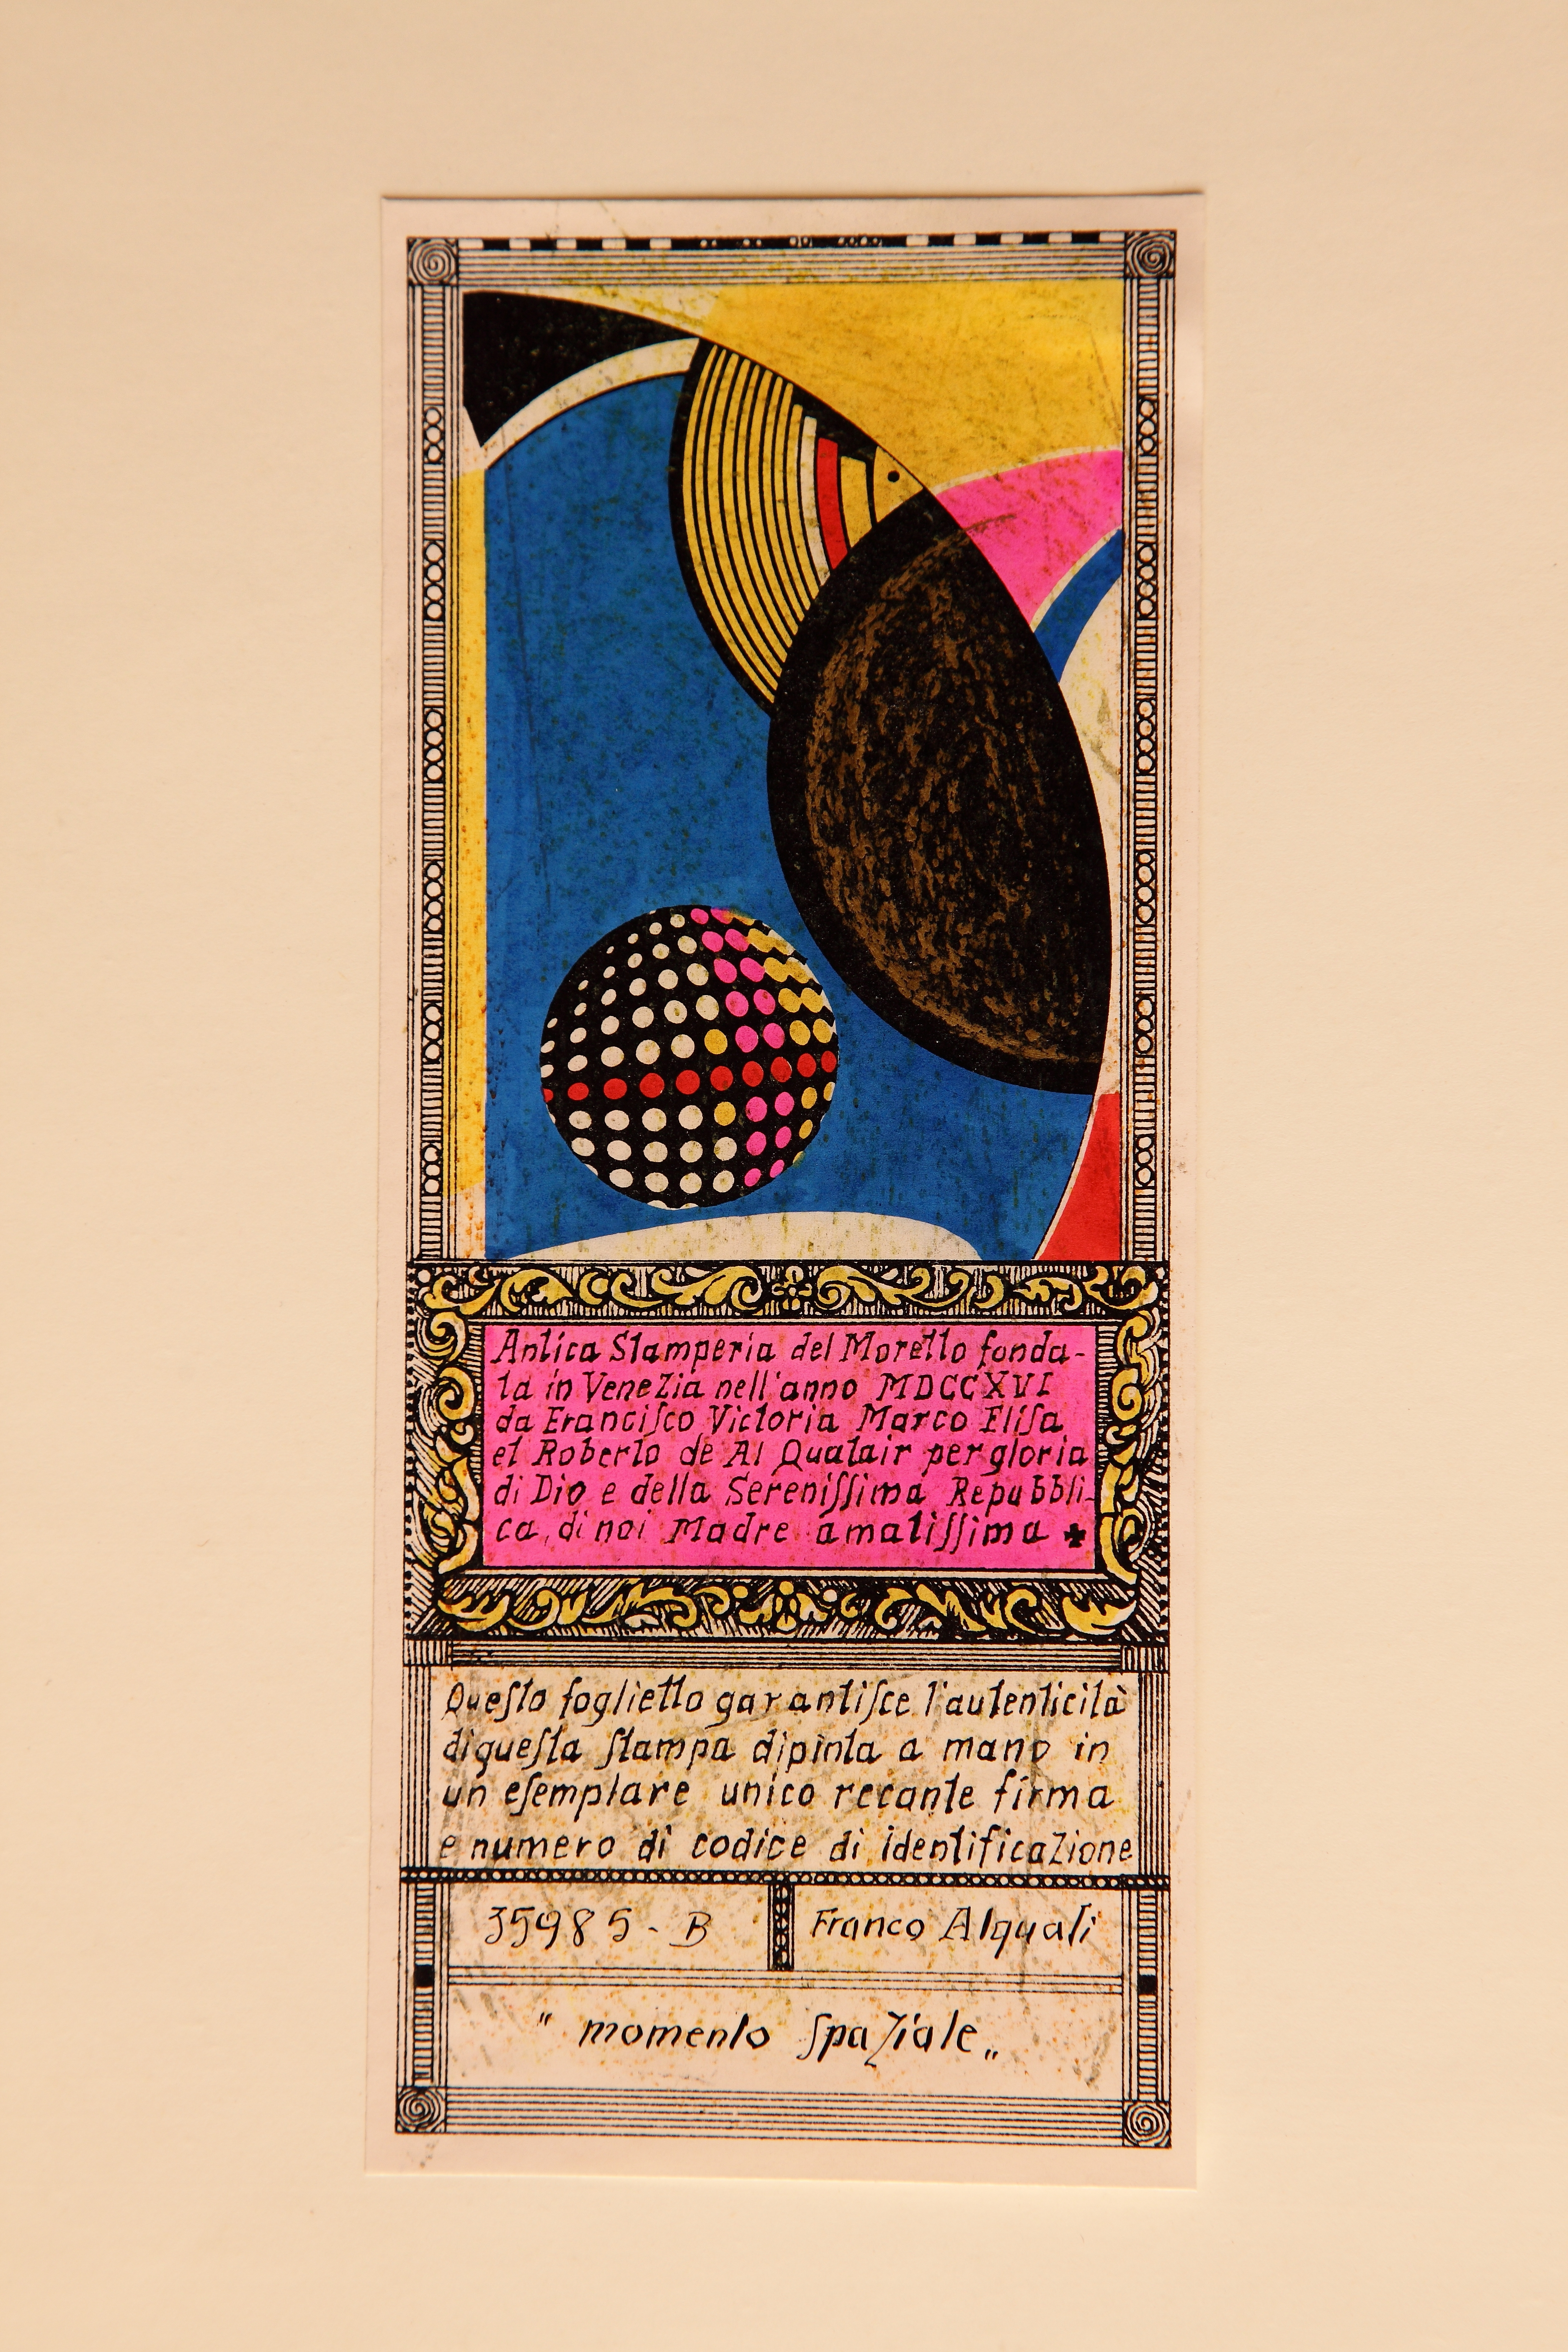 Antica Stamperia del Moretto fonda-
ta in Venezia nell'anno MDCCXVI
da Franciſco Victoria Marco Eliſa
et Roberto de Al Qualair per gloria
di Dio e della Sereniſſima Repubbli-
ca, di noi Madre amatiſſima ✚
Queſto foglietto garantiſce l'autenticità
di queſta ſtampa dipinta a mano in
un eſemplare unico recante firma
e numero di codice di identificazione
35985 - B
Franco Alquati
" momento ſpaziale „